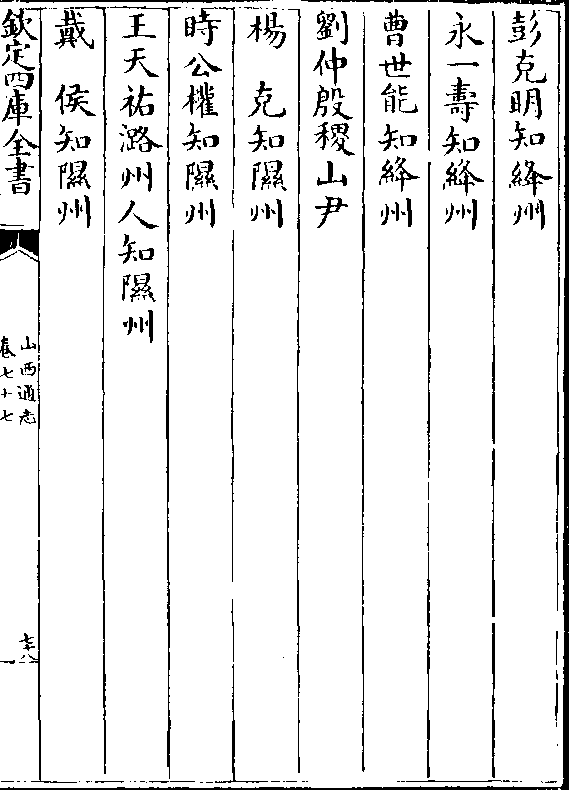 彭克明知絳州
永一壽知絳州
曹世能知絳州
劉仲殷稷山尹
楊　克知隰州
時公權知隰州
王天祐潞州人知隰州
戴　侯知隰州
欽定四庫全書
山西通志
卷七十七
七十八